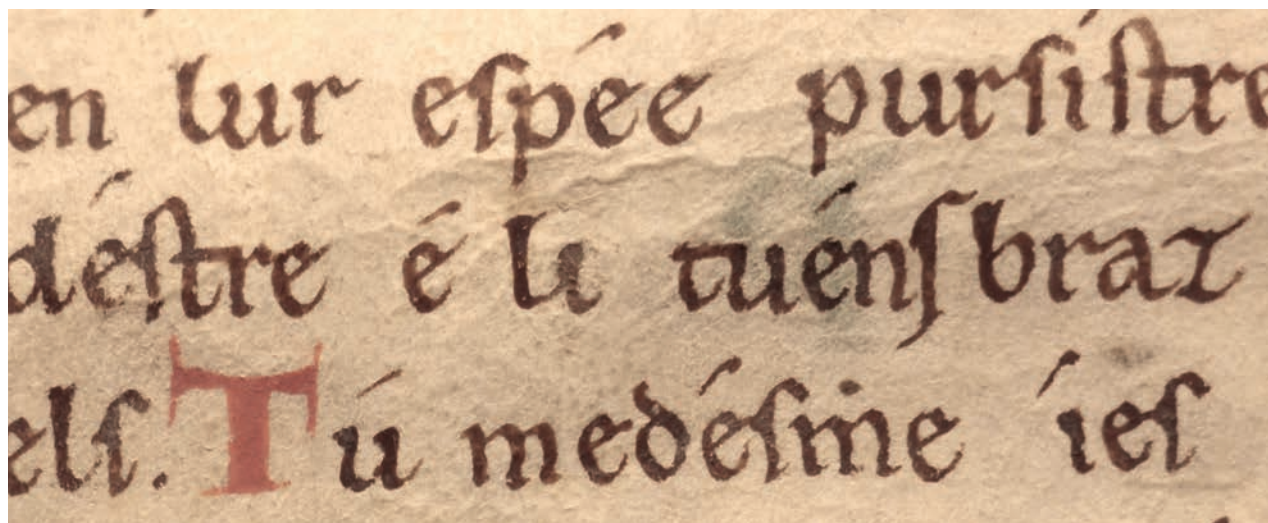 en lur espée pursistre
déstre é li tuéns braz
els. Tú medésme íes